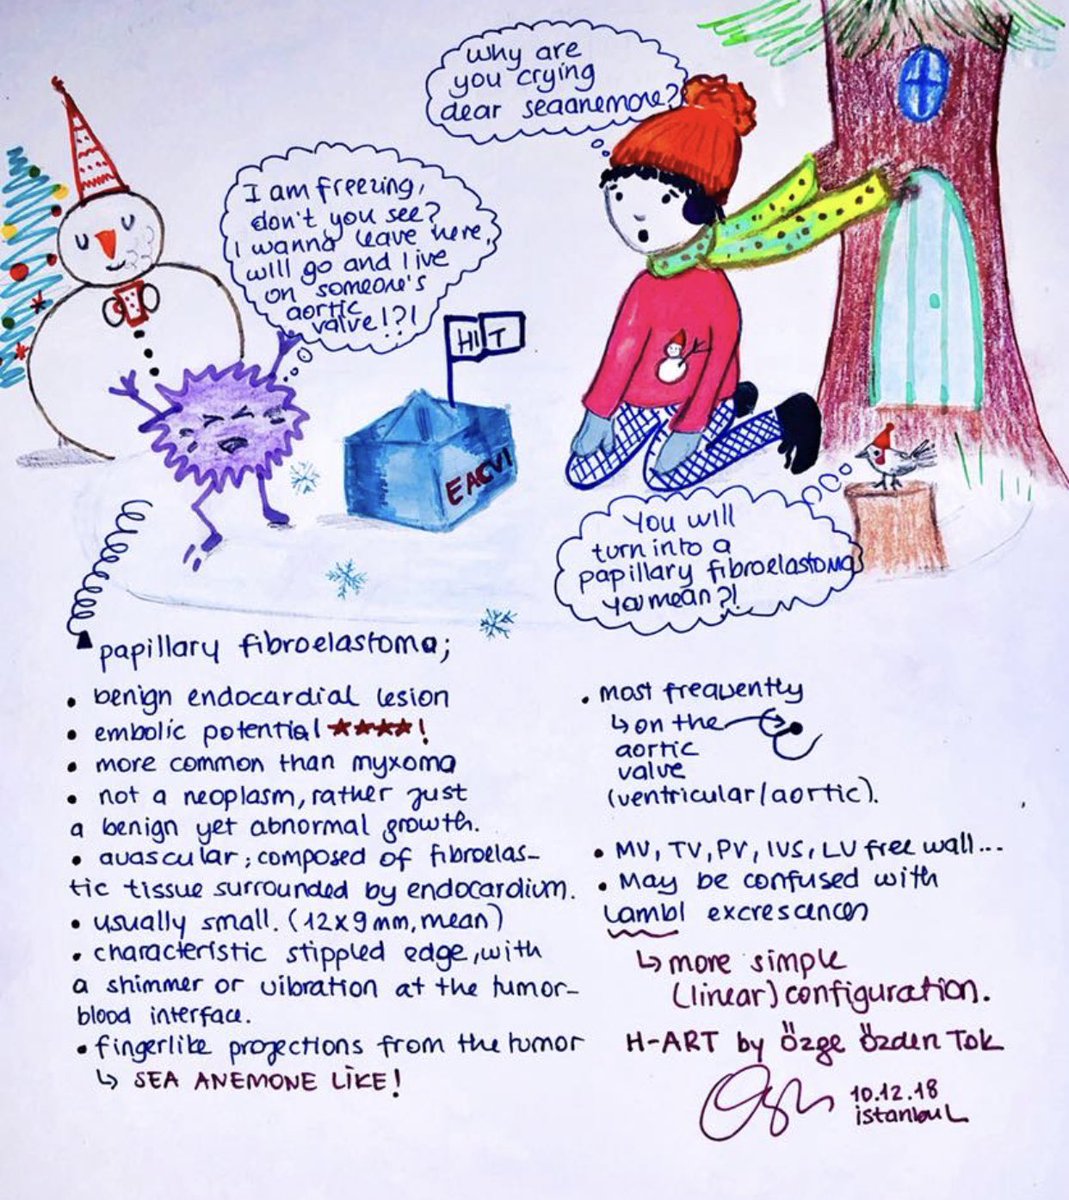 Why are
you crying
dear seaanemone?
I am freezing,
don't you see?
I wanna leave here,
will go and live
on someone's
aortic
valve!?!
HIT
EACVI
You will
turn into a
papillary fibroelastoma
you mean?!
papillary fibroelastoma;
• benign endocardial lesion
• embolic potential ★★★★!
• more common than myxoma
• not a neoplasm, rather just
a benign yet abnormal growth.
• avascular; composed of fibroelas-
tic tissue surrounded by endocardium.
• usually small. (12x9mm, mean)
• characteristic stippled edge, with
a shimmer or vibration at the tumor-
blood interface.
• fingerlike projections from the tumor
↳ SEA ANEMONE LİKE!
• most frequently
↳ on the
aortic
valve
(ventricular/aortic).
• MV, TV, PV, IVS, LV free wall...
• May be confused with
Lambl excrescences
↳ more simple
(linear) configuration.
H-ART by Özge Özden Tok
10.12.18
istanbul